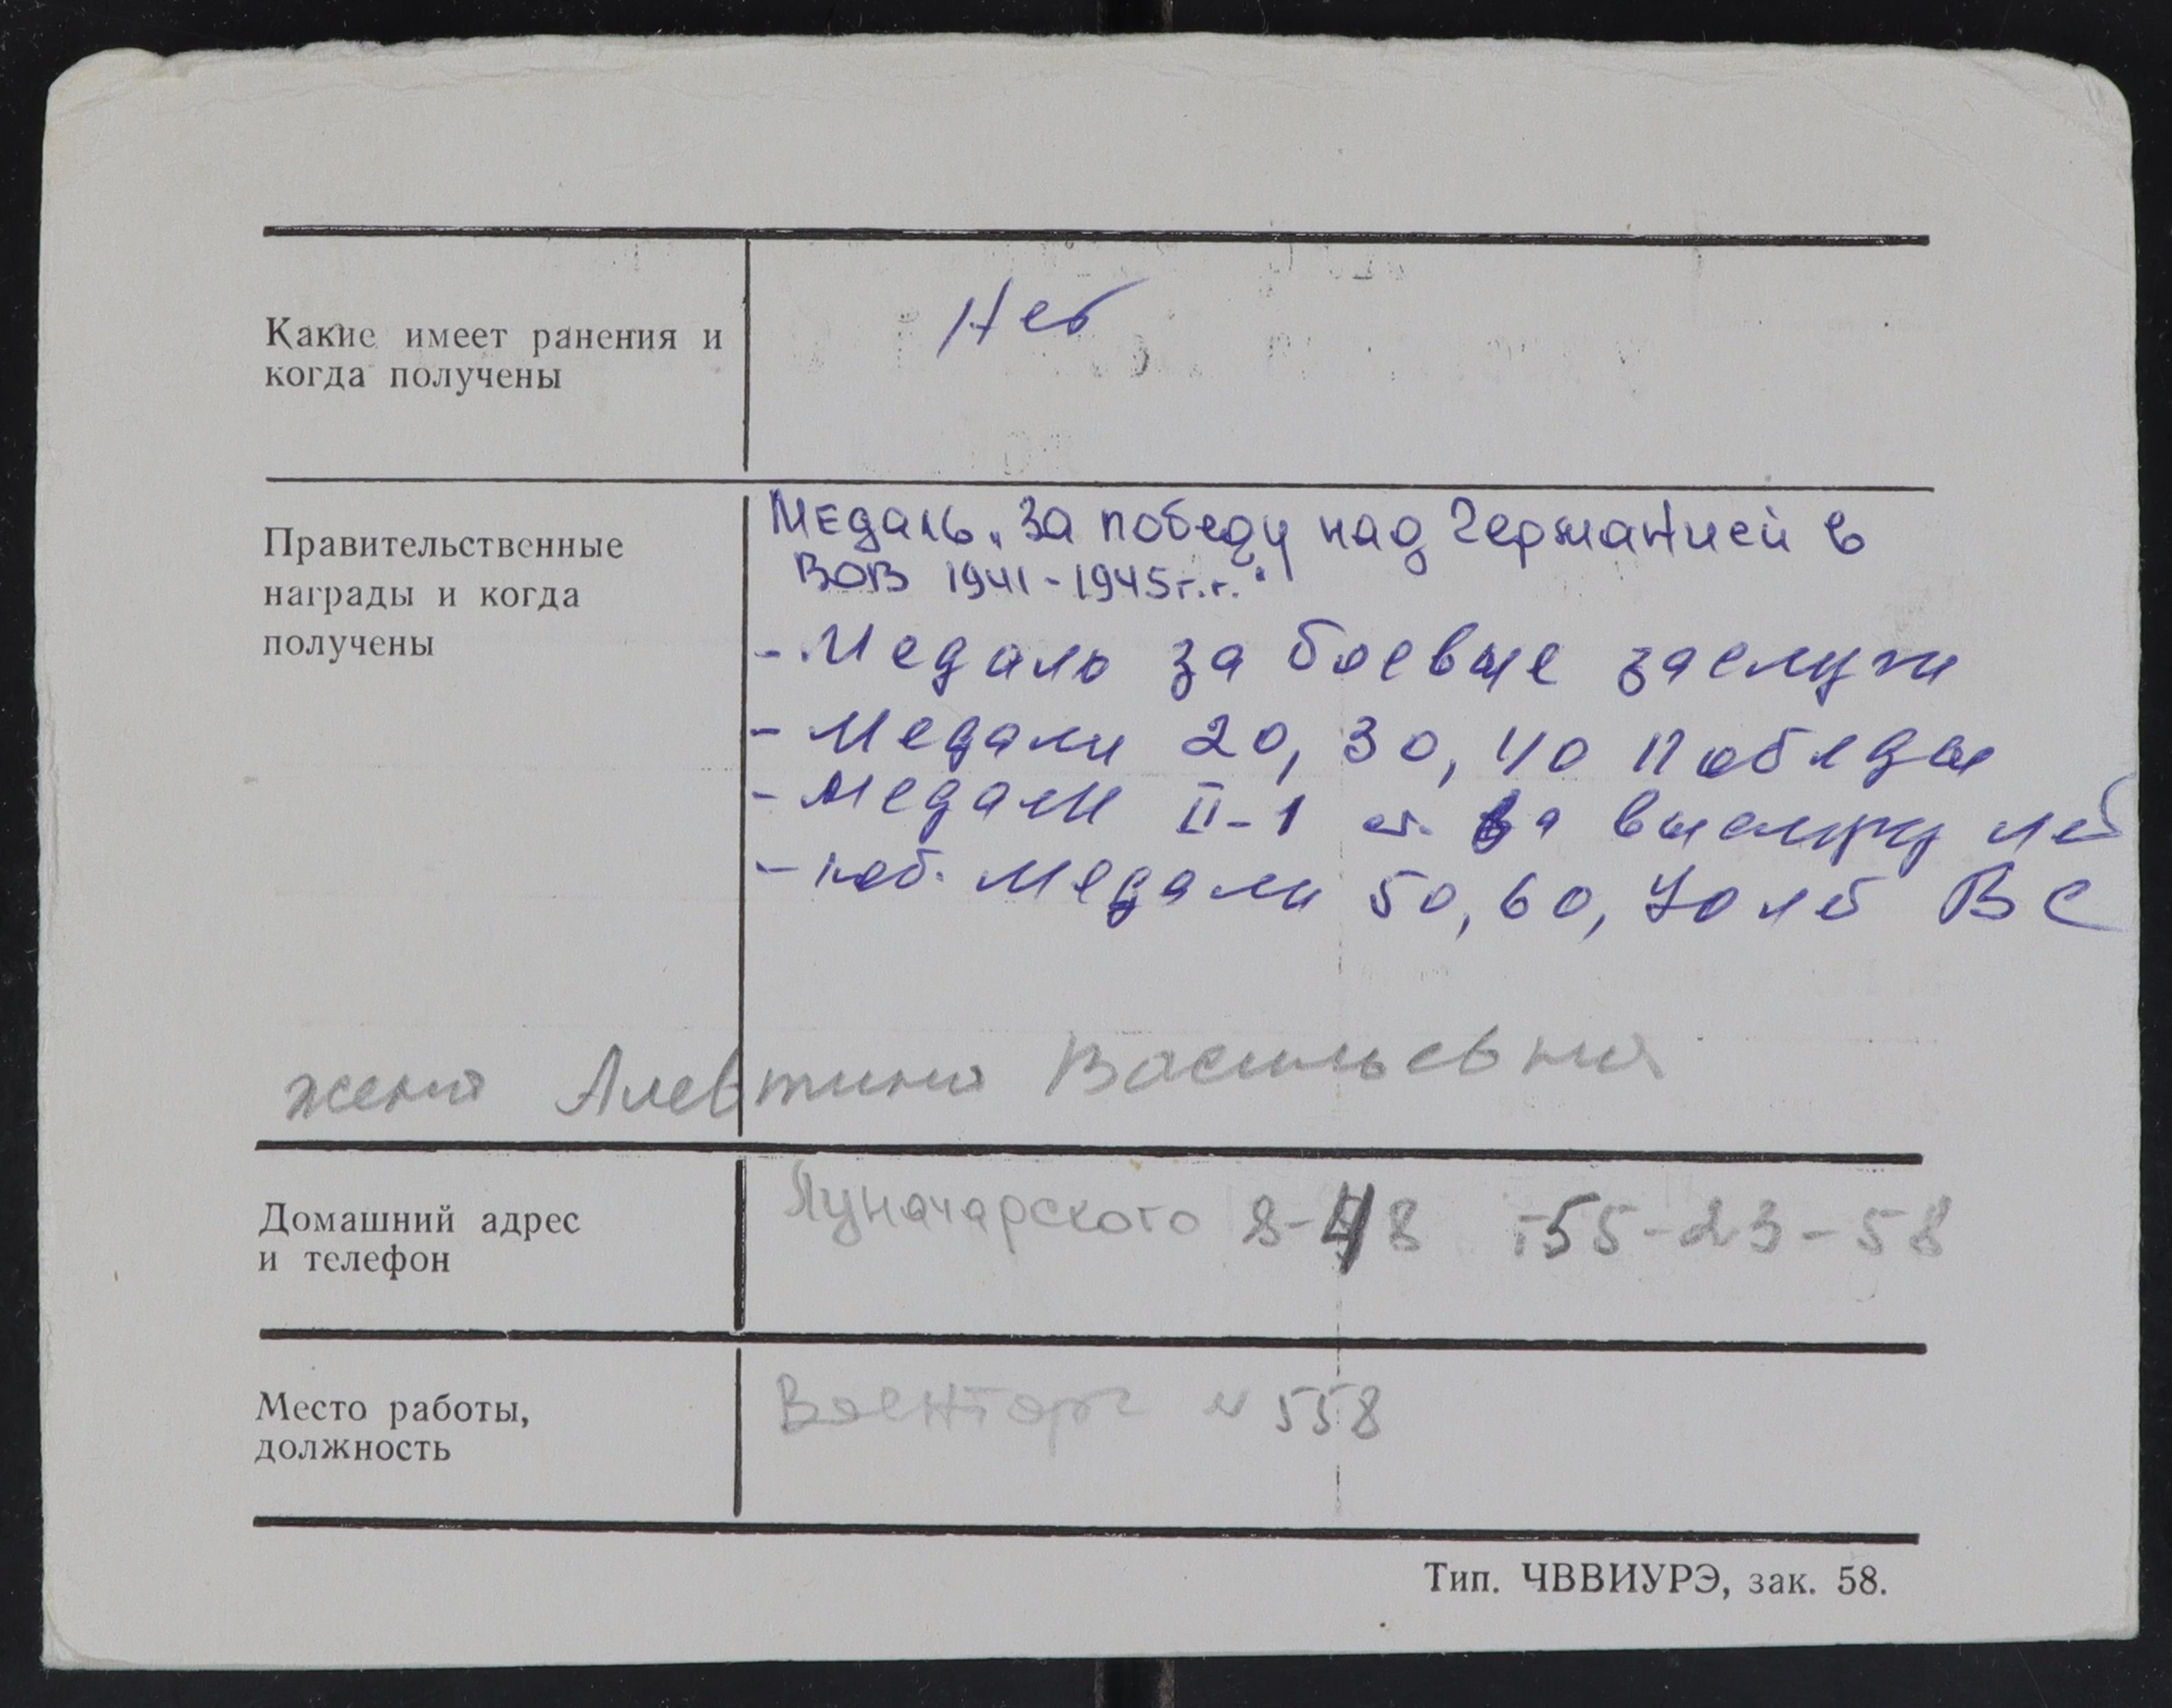 Какие имеет ранения и
когда получены
Нет
Правительственные
награды и когда
получены
Медаль „За победу над Германией в
ВОВ 1941-1945г.г."
- Медаль за боевые заслуги
- Медали 20, 30, 40 Победы
- Медали II-I ст. За выслугу лет
- юб. Медали 50, 60, 70 лет ВС
жена Алевтина Васильевна
Домашний адрес
и телефон
Луначарского 8-48 т 55-23-58
Место работы,
должность
Военторг № 558
Тип. ЧВВИУРЭ, зак. 58.